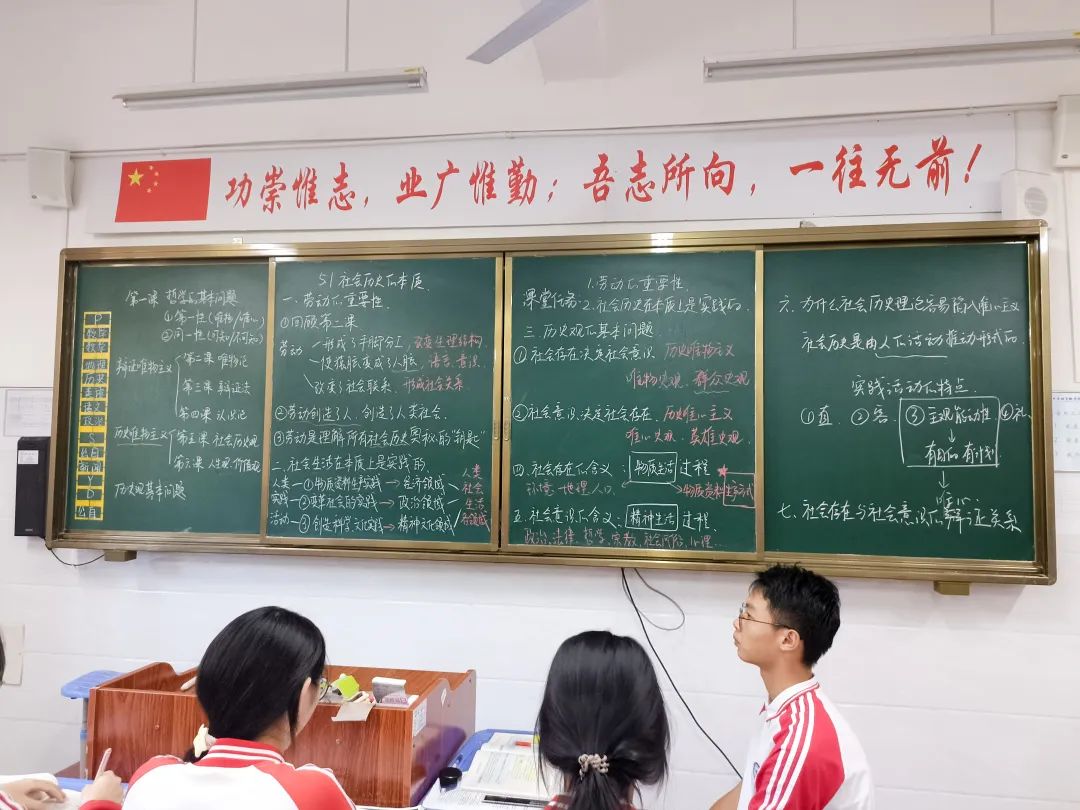 功崇惟志，业广惟勤；吾志所向，一往无前！
第一课 哲学的基本问题
①第一性(唯物/唯心)
②同一性(可知/不可知)
辩证唯物主义
第二课 唯物论
第三课 辩证法
第四课 认识论
历史唯物主义
第五课 社会历史观
第六课 人生观、价值观
历史观基本问题
P
数学
数学
地理
历史
英语
语文
政治
S
公自
新闻
Y
D
公自
5.1 社会历史的本质
一、劳动的重要性.
①回顾第二课
劳动
形成了手脚分工, 改变生理结构
使猿脑变成了人脑, 语言、意识.
改变了社会联系. 形成社会关系
②劳动创造了人、创造了人类社会.
③劳动是理解所有社会历史奥秘的"钥匙"
二、社会生活在本质上是实践的.
人类实践活动
①物质资料生产实践→经济领域
②变革社会的实践→政治领域
③创造科学文化实践→精神文化领域
人类社会生活各领域
课堂任务:
1.劳动的重要性.
2.社会历史在本质上是实践的.
三、历史观的基本问题
①社会存在决定社会意识 历史唯物主义
唯物史观、群众史观
②社会意识决定社会存在. 历史唯心主义
唯心史观、英雄史观.
四、社会存在的含义: 物质生活 过程
环境—地理 人口 物质资料生产方式
五、社会意识的含义: 精神生活 过程.
政治、法律、哲学、宗教、社会风俗、心理...
六、为什么社会历史理论容易陷入唯心主义
社会历史是由人的活动推动形成的.
实践活动的特点.
①直. ②客. ③主观能动性 ④社.
↓
有目的有计划
↓
唯心
七、社会存在与社会意识的辩证关系